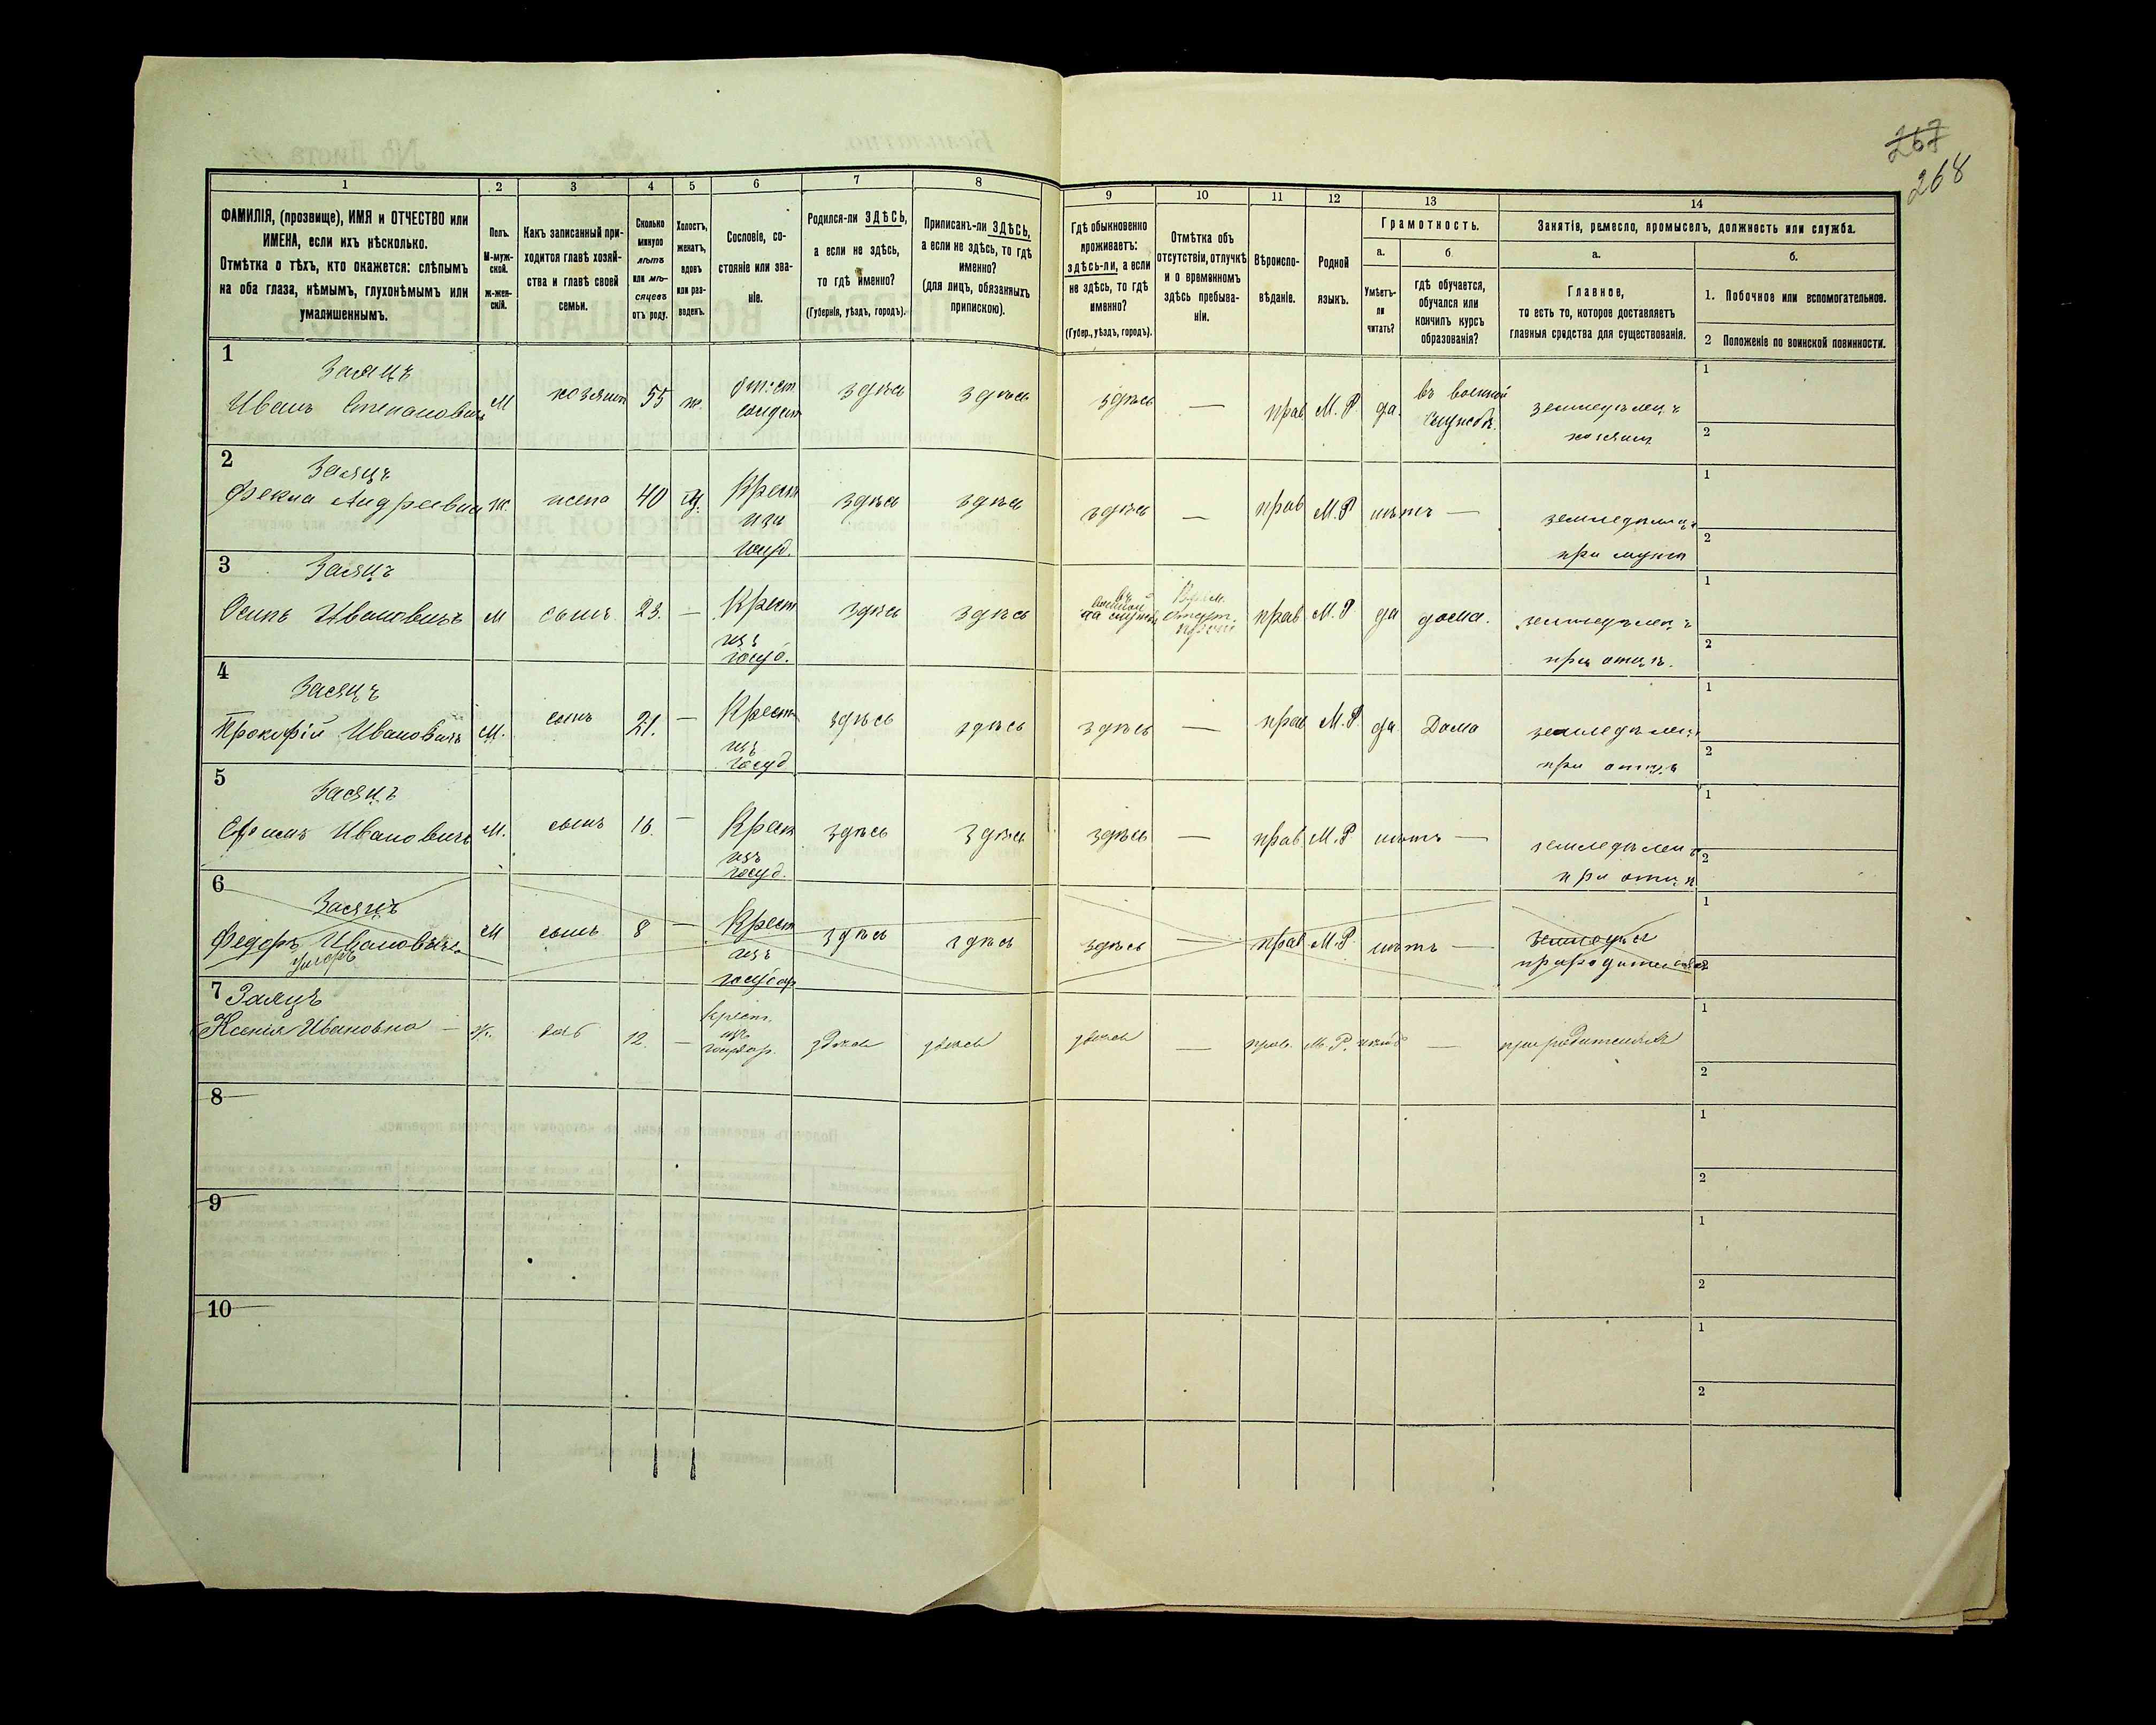 267
268
1
2
3
4
5
6
7
8
9
10
11
12
13
14
ФАМИЛІЯ, (прозвище), ИМЯ и ОТЧЕСТВО или
ИМЕНА, если ихъ нѣсколько.
Отмѣтка о тѣхъ, кто окажется: слѣпымъ
на оба глаза, нѣмымъ, глухонѣмымъ или
умалишеннымъ.
Полъ.
М-муж-
ской.
ж-жен-
скій.
Какъ записанный при-
ходится главѣ хозяй-
ства и главѣ своей
семьи.
Сколько
минуло
лѣтъ
или мѣ-
сяцевъ
отъ роду.
Холостъ,
женатъ,
вдовъ
или раз-
веденъ.
Сословіе, со-
стояніе или зва-
ніе.
Родился-ли ЗДѢСЬ,
а если не здѣсь,
то гдѣ именно?
(Губернія, уѣздъ, городъ).
Приписанъ-ли ЗДѢСЬ,
а если не здѣсь, то гдѣ
именно?
(для лицъ, обязанныхъ
припискою).
Гдѣ обыкновенно
проживаетъ:
здѣсь-ли, а если
не здѣсь, то гдѣ
именно?
(Губер., уѣздъ, городъ).
Отмѣтка объ
отсутствіи, отлучкѣ
и о временномъ
здѣсь пребыва-
ніи.
Вѣроиспо-
вѣданіе.
Родной
языкъ.
Грамотность.
а.
Умѣетъ-
ли
читать?
б
гдѣ обучается,
обучался или
кончилъ курсъ
образованія?
Занятія, ремесло, промыселъ, должность или служба.
а.
Главное,
то есть то, которое доставляетъ
главныя средства для существованія.
б.
1. Побочное или вспомогательное.
2 Положеніе по воинской повинности.
1
Заяцъ
Иванъ Степановичъ М хозяинъ 55 ж. от: ст солдат здѣсь здѣсь здѣсь — прав М. Р да. въ военной службѣ. земледѣлецъ хозяинъ 1 2
2
Заяцъ
Фекла Андреевна ж. жена 40 з. Крест изъ госуд. здѣсь здѣсь здѣсь — прав М. Р нѣтъ — земледѣлецъ при мужѣ 1 2
3
Заяцъ
Осипъ Ивановичъ М сынъ 23. — Крест изъ госуд. здѣсь здѣсь прав М. Р да дома. земледѣлецъ при отцѣ. 1 2
4
Заяцъ
Прокофій Ивановичъ М. сынъ 21. — Крест изъ госуд здѣсь здѣсь здѣсь — прав М. Р. да Дома земледѣлецъ при отцѣ 1 2
5
Заяцъ
Ефимъ Ивановичъ М. сынъ 16. — Крест изъ госуд. здѣсь здѣсь здѣсь — прав М. Р нѣтъ — земледѣлецъ при отцѣ 1 2
6
Заяцъ
Федоръ Ивановичъ М сынъ 8 — Крест изъ государ здѣсь здѣсь здѣсь — прав М. Р. нѣтъ — 1 2
умеръ
7 Заяцъ
Ксенія Ивановна — ж. 12. — крест. изъ государ. здѣсь здѣсь здѣсь — прав. М. Р. нѣтъ — при родителяхъ 1 2
8 1 2
9 1 2
10 1 2